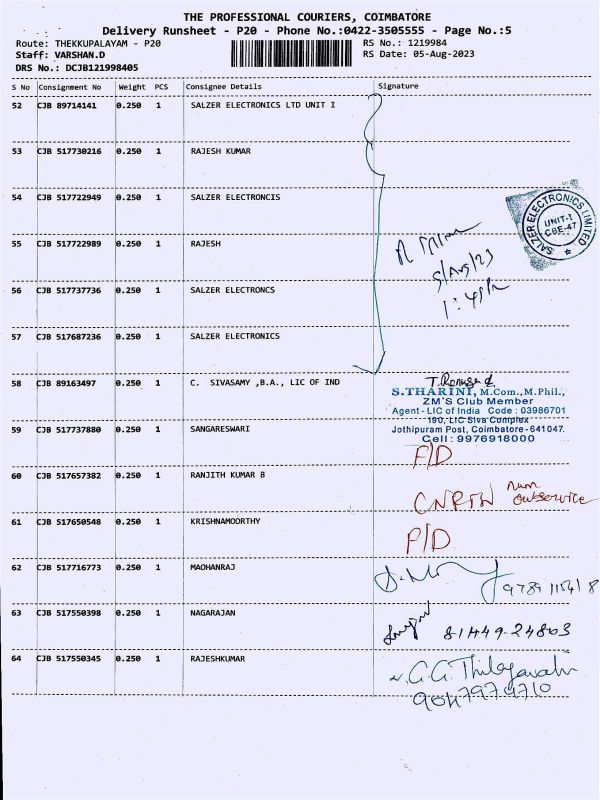 THE PROFESSIONAL COURIERS, COIMBATORE
Delivery Runsheet - P20 - Phone No.:0422-3505555 - Page No.:5
Route: THEKKUPALAYAM - P20 RS No.: 1219984
Staff: VARSHAN.D RS Date: 05-Aug-2023
DRS No.: DCJB121998405
S No Consignment No Weight PCS Consignee Details Signature
52 CJB 89714141 0.250 1 SALZER ELECTRONICS LTD UNIT I
53 CJB 517730216 0.250 1 RAJESH KUMAR
54 CJB 517722949 0.250 1 SALZER ELECTRONCIS
SALZER ELECTRONICS LIMITED
UNIT-I
CBE-47
55 CJB 517722989 0.250 1 RAJESH
5/Aug/23
56 CJB 517737736 0.250 1 SALZER ELECTRONCS
57 CJB 517687236 0.250 1 SALZER ELECTRONICS
58 CJB 89163497 0.250 1 C. SIVASAMY ,B.A., LIC OF IND
S.THARINI, M.Com., M.Phil.,
ZM'S Club Member
Agent - LIC of India Code : 03986701
190, LIC Siva Complex
Jothipuram Post, Coimbatore - 641047.
Cell : 9976918000
59 CJB 517737880 0.250 1 SANGARESWARI
P/D
60 CJB 517657382 0.250 1 RANJITH KUMAR B
num
outservice
61 CJB 517650548 0.250 1 KRISHNAMOORTHY
P/D
62 CJB 517716773 0.250 1 MAOHANRAJ
63 CJB 517550398 0.250 1 NAGARAJAN
81449-24803
64 CJB 517550345 0.250 1 RAJESHKUMAR